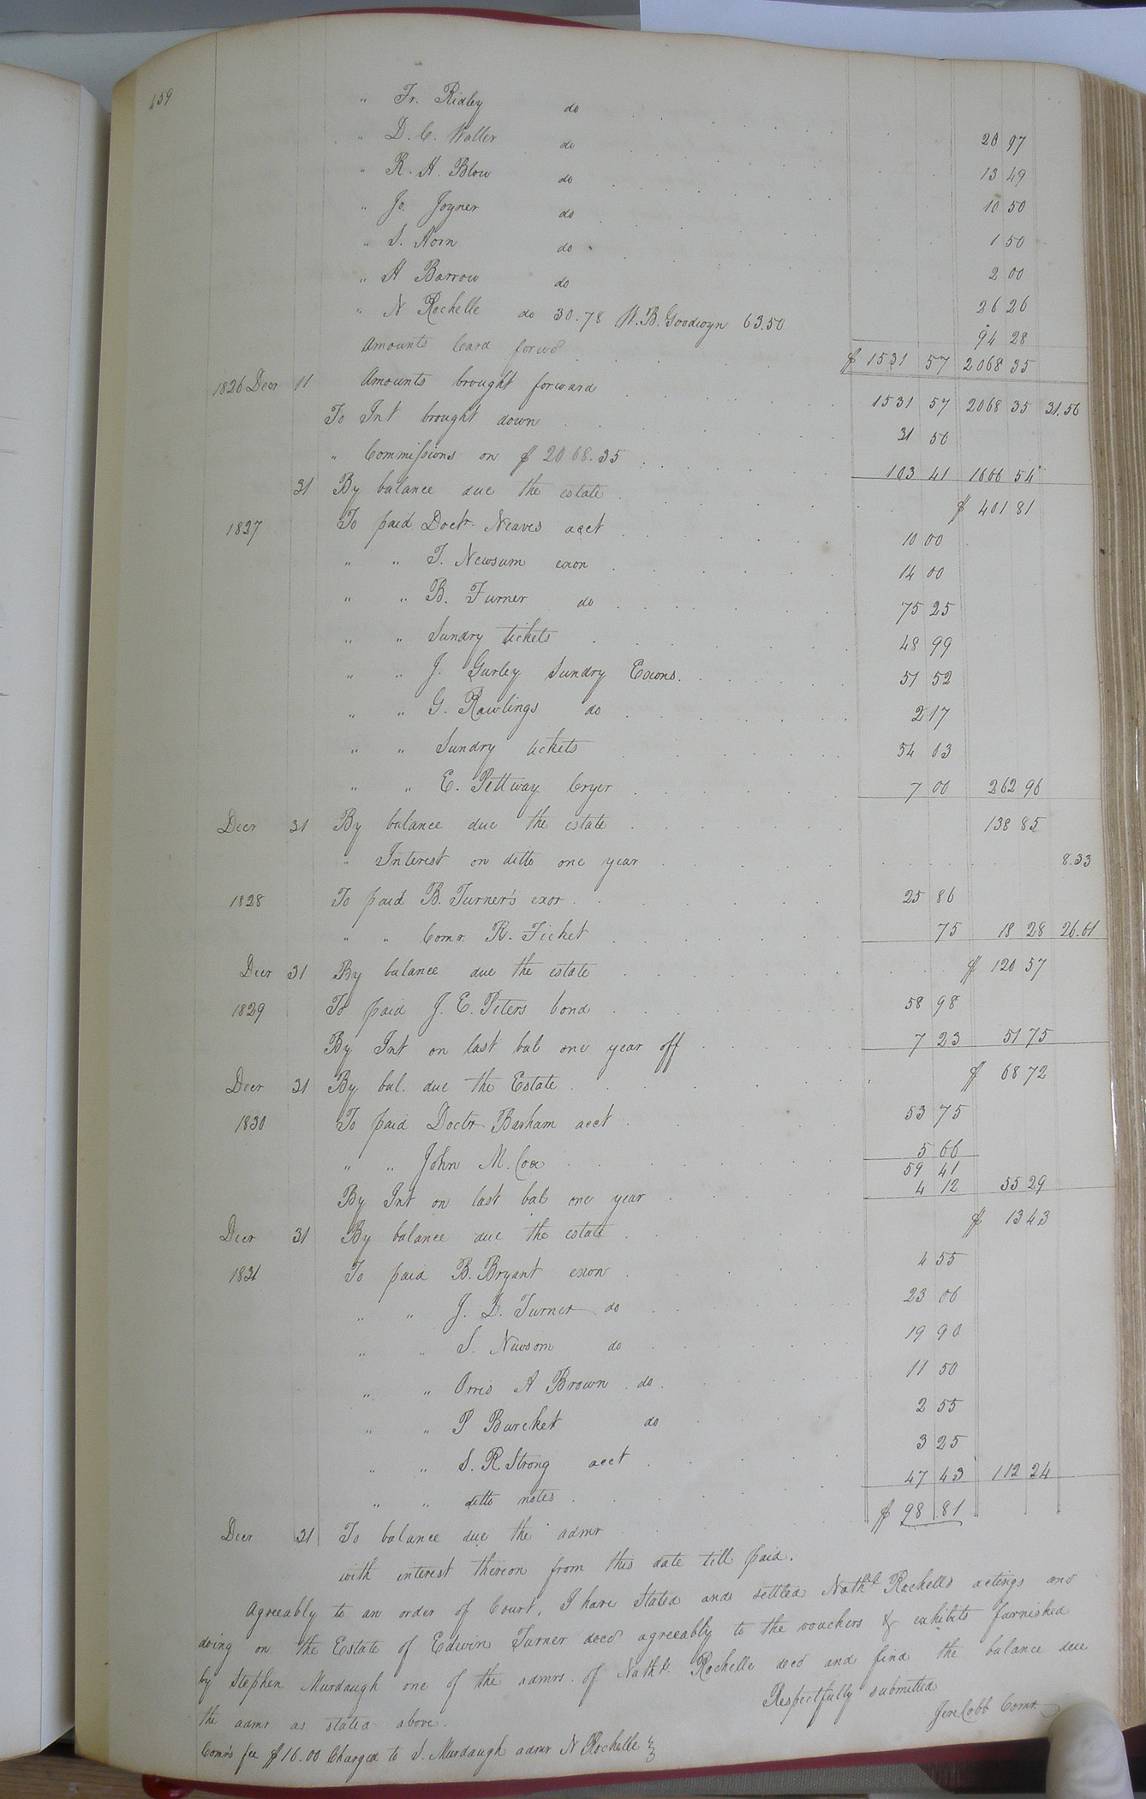 159
" Fr. Ridley do 20 97
" D. C. Waller do 13 49
" R. H. Blow do 10 50
" Jo Joyner do 1 50
" S. Horn do 2 00
" H Barrow do 26 26
" N Rochelle do 30.78 W. B. Goodwyn 63.50 94 28
Amounts Card forwd $ 1531 57 2068 35
1826 Decr 11 Amounts brought forward 1531 57 2068 35 31.56
To Int brought down 31 56
" Commissions on $ 2068.35 103 41 1666 54
31 By balance due the estate $ 401 81
1827 To paid Doctr Neaves acct 10 00
" " T. Newsum exon 14 00
" " B. Turner do 75 25
" " Sundry tickets 48 99
" " J. Gurley Sundry Exons. 51 52
" " G. Rawlings do 2 17
" " Sundry tickets 54 03
" " E. Pettway Cryer 7 00 262 96
Decr 31 By balance due the estate 138 85
" Interest on ditto one year 8.33
1828 To paid B. Turner's exor 25 86
" " Comr. R. Ticket 75 18 28 26.61
Decr 31 By balance due the estate $ 120 57
1829 To paid J. E. Peters bond 58 98
By Int on last bal one year off 7 23 51 75
Decr 31 By bal. due the Estate $ 68 72
1830 To paid Doctr Barham acct 53 75
" " John M. Cox 5 66
59 41
By Int on last bal one year 4 12 55 29
Decr 31 By balance due the estate $ 13 43
1831 To paid B. Bryant exon 4 55
" " J. D. Turner do 23 06
" " S. Newsom do 19 90
" " Orris A Brown do 11 50
" " P Burcket do 2 55
" " S. R Strong acct 3 25
" " ditto notes 47 43 112 24
Decr 31 To balance due the admr $ 98 81
with interest thereon from this date till paid.
Agreeably to an order of Court, I have Stated and settled Nathl Rochells actings and
doing on the Estate of Edwin Turner decd agreeably to the vouchers & exhibits furnished
by Stephen Murdaugh one of the admrs. of Nathl. Rochelle decd and find the balance due
the admr as stated above. Respectfully submitted
Jere Cobb Comr.
Comr's fee $ 16.00 Charged to S. Murdaugh admr N Rochelle